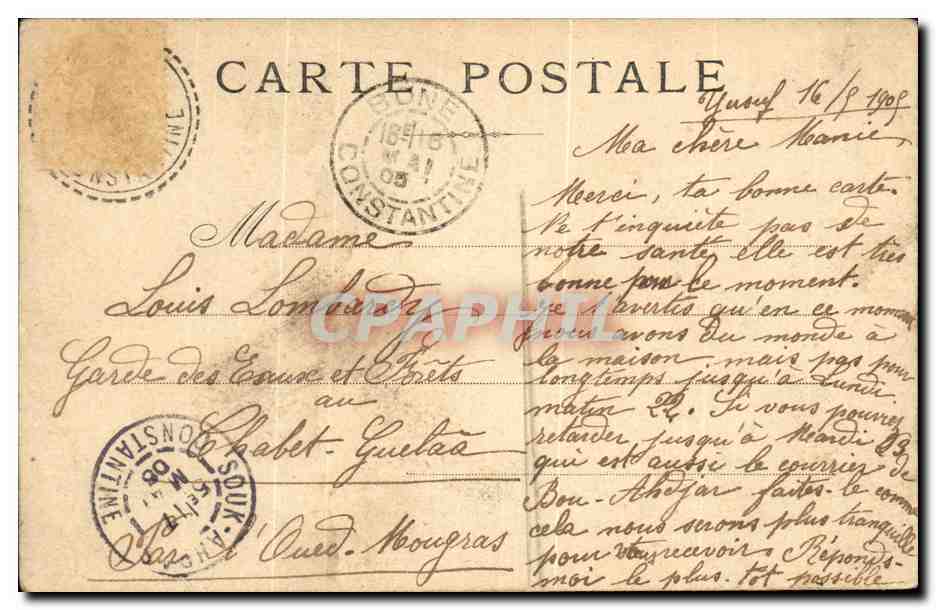 CARTE POSTALE
CONSTANTINE
BONE
16 E/16
MAI
05
CONSTANTINE
16/5 1905
Ma chère Mamie,
Merci, ta bonne carte.
Ne t'inquiète pas de
notre santé, elle est très
bonne pour le moment.
Je t'avertis qu'en ce moment
nous avons du monde à
la maison mais pas pour
longtemps jusqu'à Lundi
matin 22. Si vous pouviez
retarder jusqu'à Mardi 23
qui est aussi le courrier de
Bou-Ahdjar faites-le comme
cela nous serons plus tranquille
pour vous recevoir Réponds-
moi le plus-tôt possible
Madame
Louis Lombardy
Garde des Eaux et Forêts
au
Chabet-Guetàa
Par l'Oued-Mougras
SOUK-AHRAS
CONSTANTINE
CPAPHIL